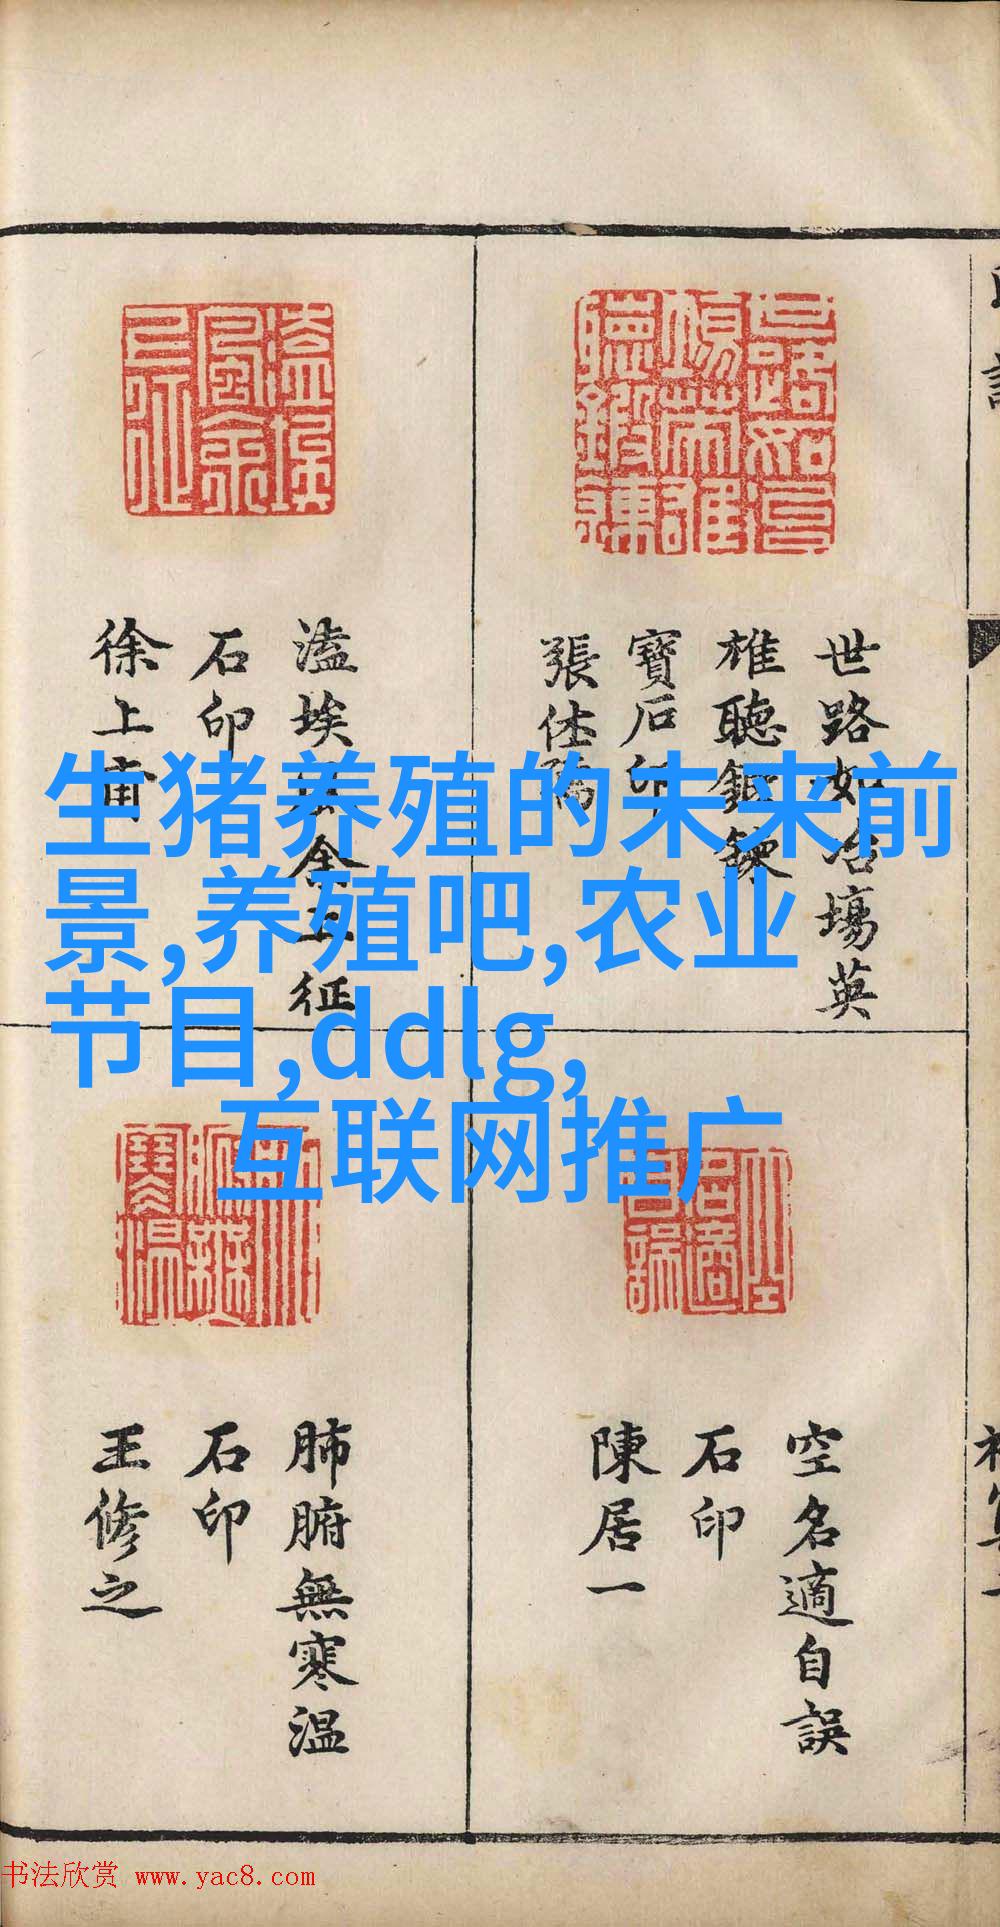 生猪养殖的未来前
景,养殖吧,农业
节目,ddlg,
互联网推广
世路如冶塲英
雄聴鍜鍊
寶石印
張仕
溘埃
石印
徐上甫
空名適自誤
石印
陳居一
肺腑無寒温
石印
王修之
书法欣赏 www.yac8.com